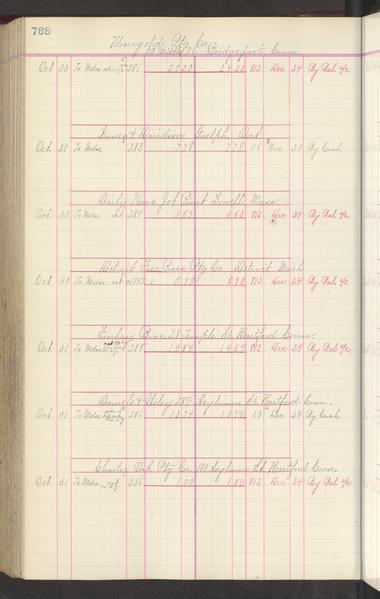 768
Marigold Ptg Co.
Bridgeport Conn.
Oct 30 To Mdse 281 29 20 29 20 812 Dec 24 By Bal a/c
& Davidson Guelph Ont
Oct 29 To Mdse 283 7 78 7 78 58 Nov 20 By Cash
Daily News Job Print Lowell Mass
Oct 30 To Mdse net 284 812 Dec 24 By Bal a/c
Detroit Free Press Ptg Co. Detroit Mich
Oct 30 To Mdse net 6 90 6 90 812 Dec 24 By Bal a/c
Finlay Bros 28 Temple St. Hartford Conn.
Oct 31 To Mdse 285 14 84 14 84 812 Dec 24 By Bal a/c
& Wiley 284 Asylum St. Hartford Conn.
Oct 31 To Mdse 286 10 74 10 74 Dec 24 By Cash
Charter Oak Ptg Co. 110 Asylum St. Hartford Conn.
Oct 31 To Mdse 286 1 00 1 00 812 Dec 24 By Bal a/c